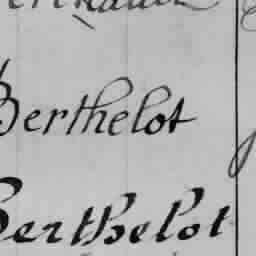 Berthelot
Berthelot